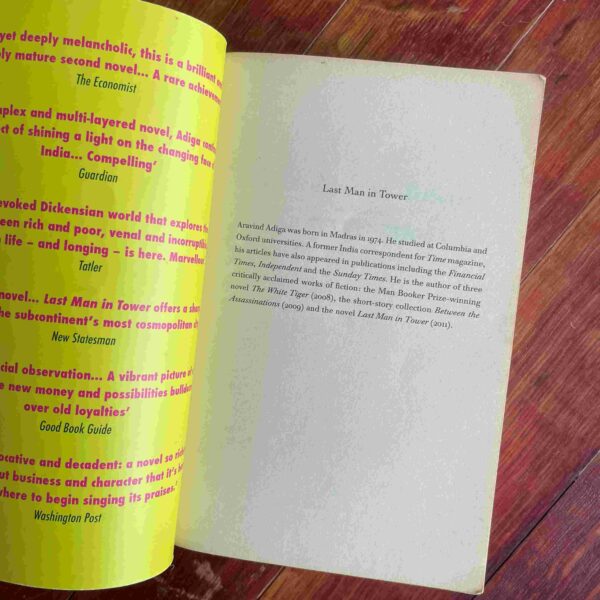 yet deeply melancholic, this is a brilliant
mature second novel... A rare
The Economist
and multi-layered novel, Adiga
of shining a light on the changing face
India... Compelling'
Guardian
Dickensian world that explores
rich and poor, venal and
life – and longing – is here.
Tatler
novel... Last Man in Tower offers a
the subcontinent's most cosmopolitan
New Statesman
observation... A vibrant picture
new money and possibilities
over old loyalties'
Good Book Guide
and decadent: a novel so
business and character that it's
where to begin singing its praises.'
Washington Post
Last Man in Tower
Aravind Adiga was born in Madras in 1974. He studied at Columbia and
Oxford universities. A former India correspondent for Time magazine,
his articles have also appeared in publications including the Financial
Times, Independent and the Sunday Times. He is the author of three
critically acclaimed works of fiction: the Man Booker Prize-winning
novel The White Tiger (2008), the short-story collection Between the
Assassinations (2009) and the novel Last Man in Tower (2011).